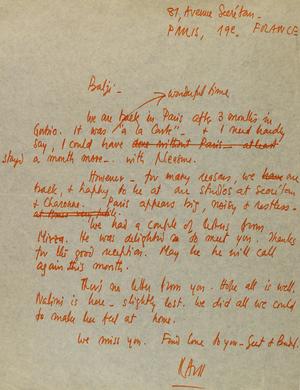 81, Avenue Secrétan_
PARIS, 19e. FRANCE
Balji_
wonderful time
We are back in Paris after 3 months in
Gorbio. It was "a la Carte"_ & I need hardly
say, I could have done without Paris_ at least
stayed a month more_ with pleasure.
However_ for many reasons, we have are
back, & happy to be at our studios at Secrétan
& Charonne. Paris appears big, noisy & restless_
We had a couple of letters from
Mirza. He was delighted to meet you. Thanks
for the good reception. May be he will call
again this month.
There's no letter from you. Hope all is well.
Nalini is here_ slightly lost. We did all we could
to make her feel at home.
We miss you. Fond love to you_ Geet &
RAZA